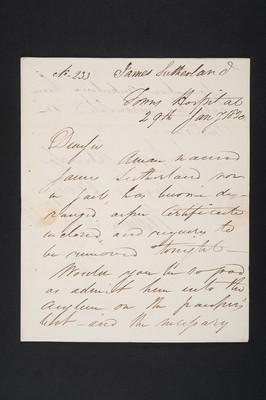 No. 233 James Sutherland
Towns Hospital
29th Jany 1820
Dear Sir
A man named
James Sutherland now
in jail, has become de-
ranged as per Certificate
inclosed and requires to
be removed tonight —
Would you be so good
as admit him into the
Asylum on the pauper's
list - and the necessary